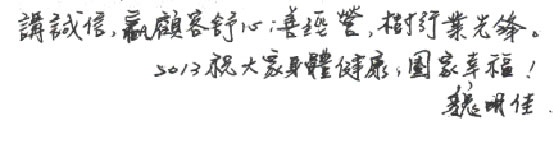 講誠信,贏顧客舒心;善經營,樹行業先鋒。
2013祝大家身體健康,國家幸福!
魏明佳.